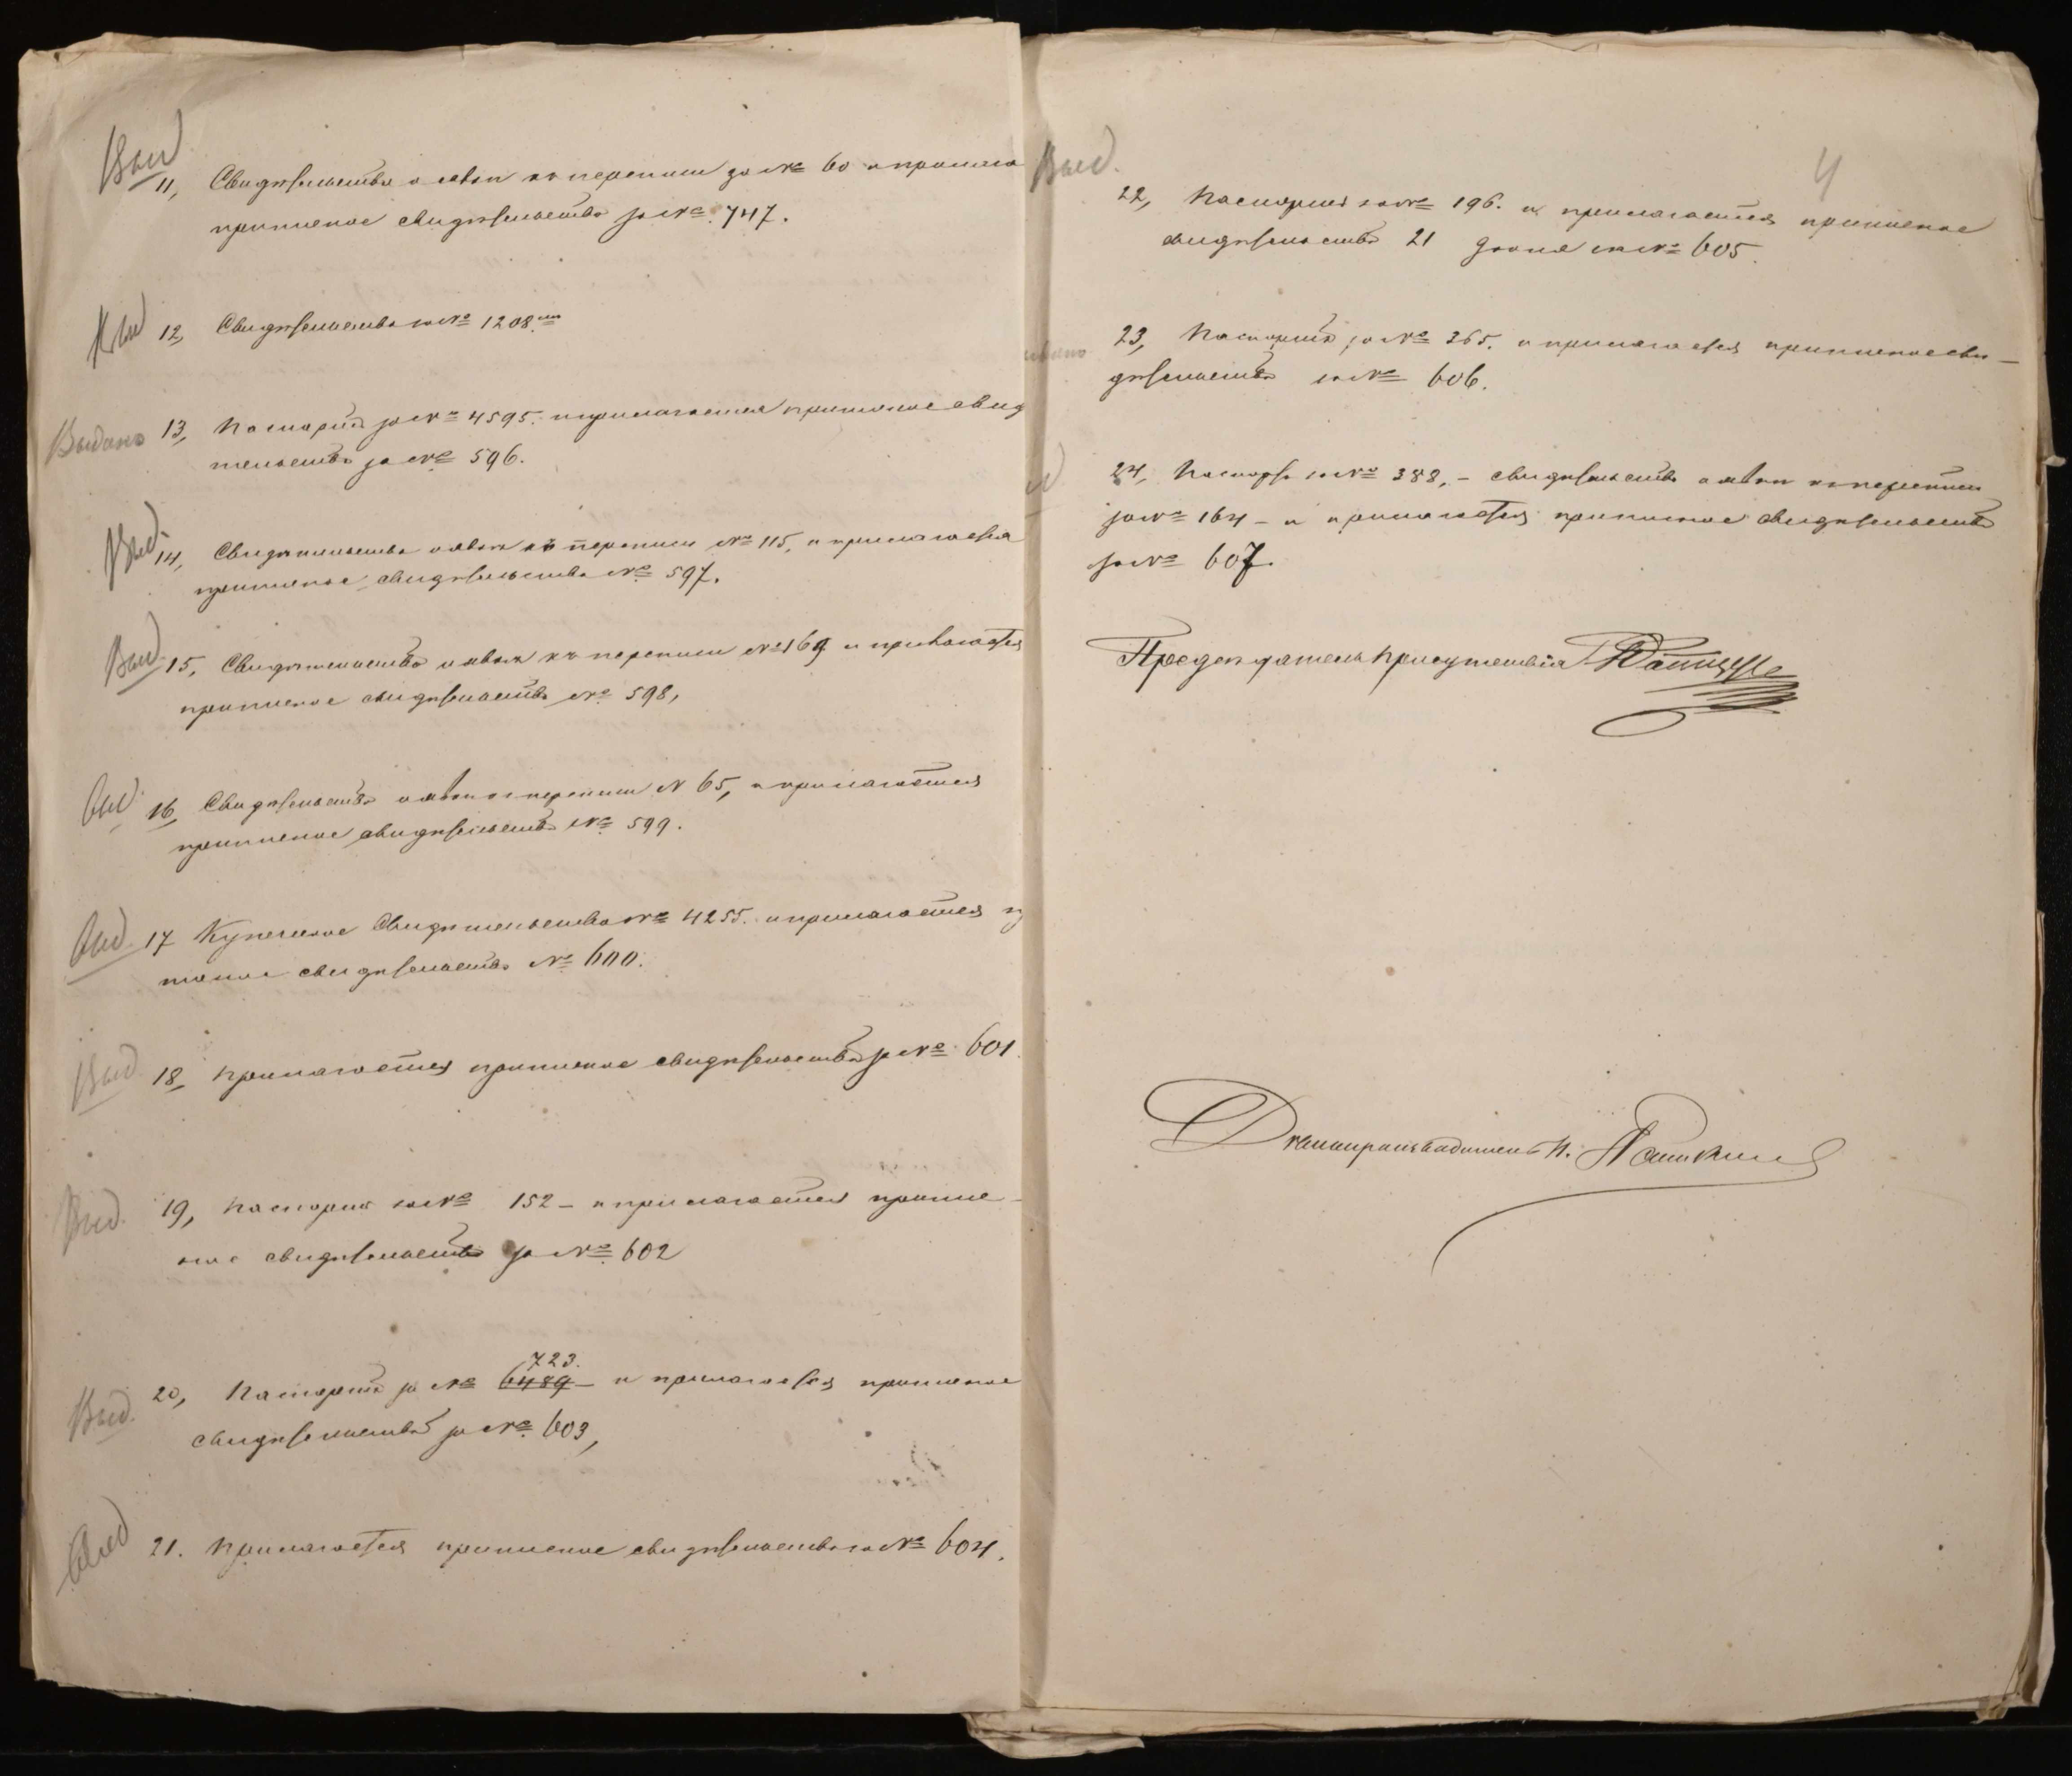 Выд
11, Свидѣтельство о явкѣ къ переписи за № 60 и прилага
приписное свидѣтельство за № 747.
Выд 12, Свидѣтельство за № 1208.
Выдано 13, Паспортъ за № 4595. и прилагается приписное свид
тельство за № 596.
Выд. 14, Свидѣтельство о явкѣ къ переписи № 115, и прилагается
приписное свидѣтельство № 597.
Выд. 15, Свидѣтельство о явкѣ къ переписи № 169 и прилагается
приписное свидѣтельство № 598,
Выд. 16, Свидѣтельство о явкѣ къ переписи № 65, и прилагается
приписное свидѣтельство № 599.
Выд. 17 Купеческое Свидѣтельство № 4255. и прилагается п
свидѣтельство № 600.
Выд. 18, Прилагается приписное свидѣтельство за № 601.
Выд. 19, Паспортъ за № 152 – и прилагается приписное
свидѣтельство за № 602
723.
Выд. 20, Паспортъ за № 6489 – и прилагается приписное
свидѣтельство за № 603,
Выд 21. Прилагается приписное свидѣтельство за № 604.
4
Выд.
22, Паспортъ за № 196. и прилагается приписное
свидѣтельство 21 за № 605.
23, Паспортъ за № 265. и прилагается приписное сви–
дѣтельство за № 606.
24, Паспортъ за № 388, – свидѣтельство о явкѣ къ переписи
за № 164 – и прилагается приписное свидѣтельство
за № 607.
Предсѣдатель Присутствія
Дѣлопроизводитель П.